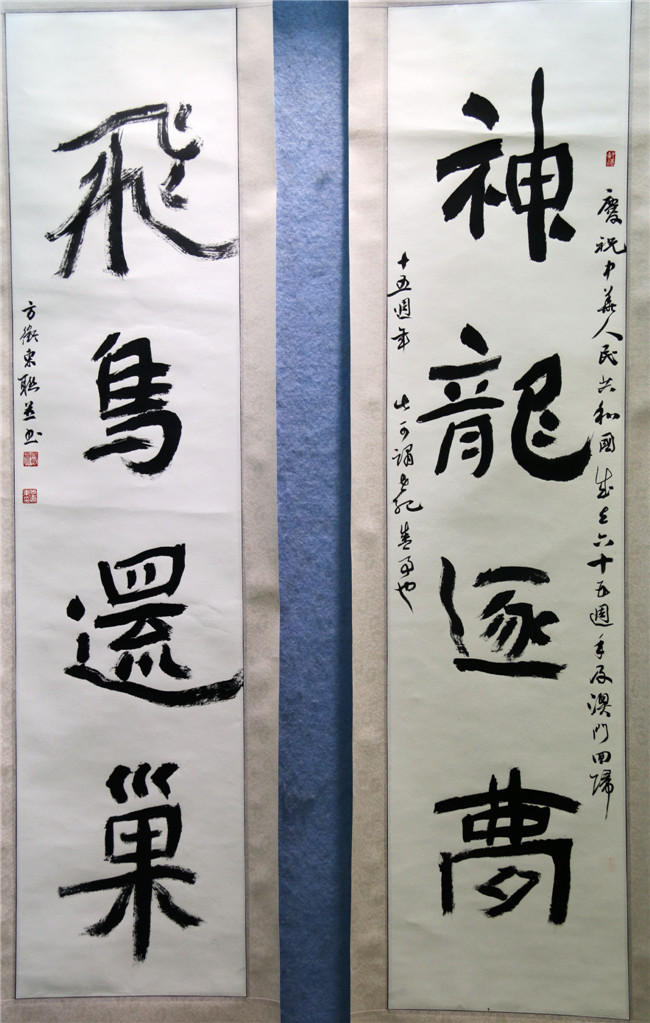 慶祝中華人民共和國成立六十五週年及澳門回歸
神龍逐夢
十五週年 此可謂世紀盛事也
飛鳥還巢
方徵東聯並书